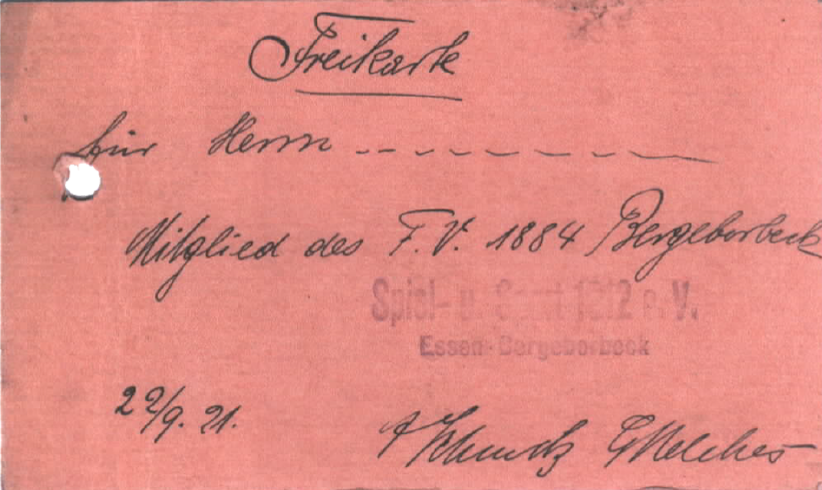 Freikarte
für Herrn
Mitglied des F.V. 1884 Bergeborbeck
Spiel- u. Sport 1912 e. V.
Essen-Bergeborbeck
22/9. 21.
Schmitz Melches